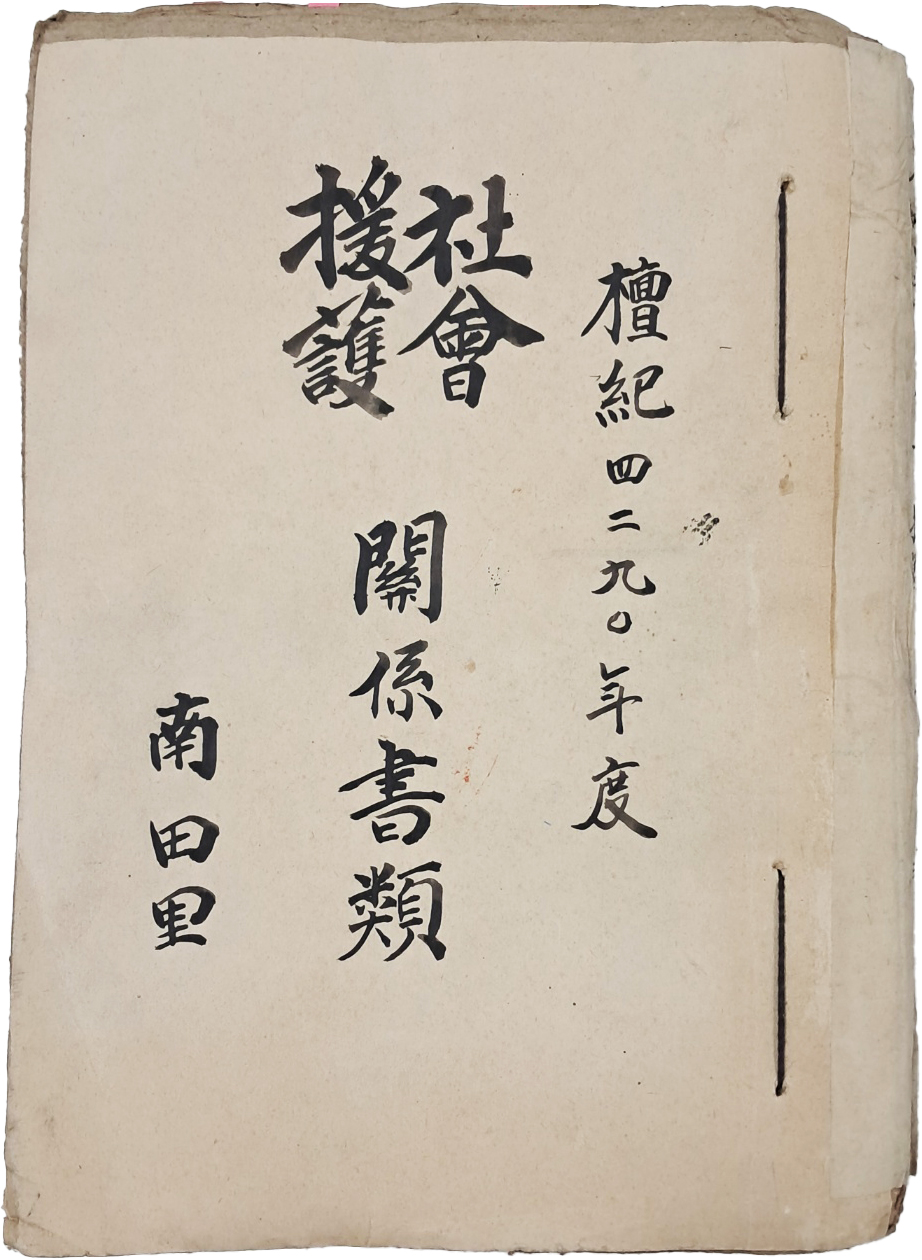 檀紀四二九〇年度
社會
援護
關係書類
南田里